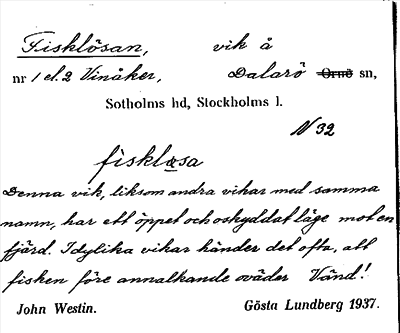 Fisklösan, vik å
nr 1 el. 2 Vinåker, Dalarö Ornö sn,
Sotholms hd, Stockholms l.
N 32
fisklɷsa
Denna vik, liksom andra vikar med samma
namn, har ett öppet och oskyddat läge mot en
fjärd. I dylika vikar händer det ofta, att
fisken före annalkande oväder Vänd!
John Westin. Gösta Lundberg 1937.